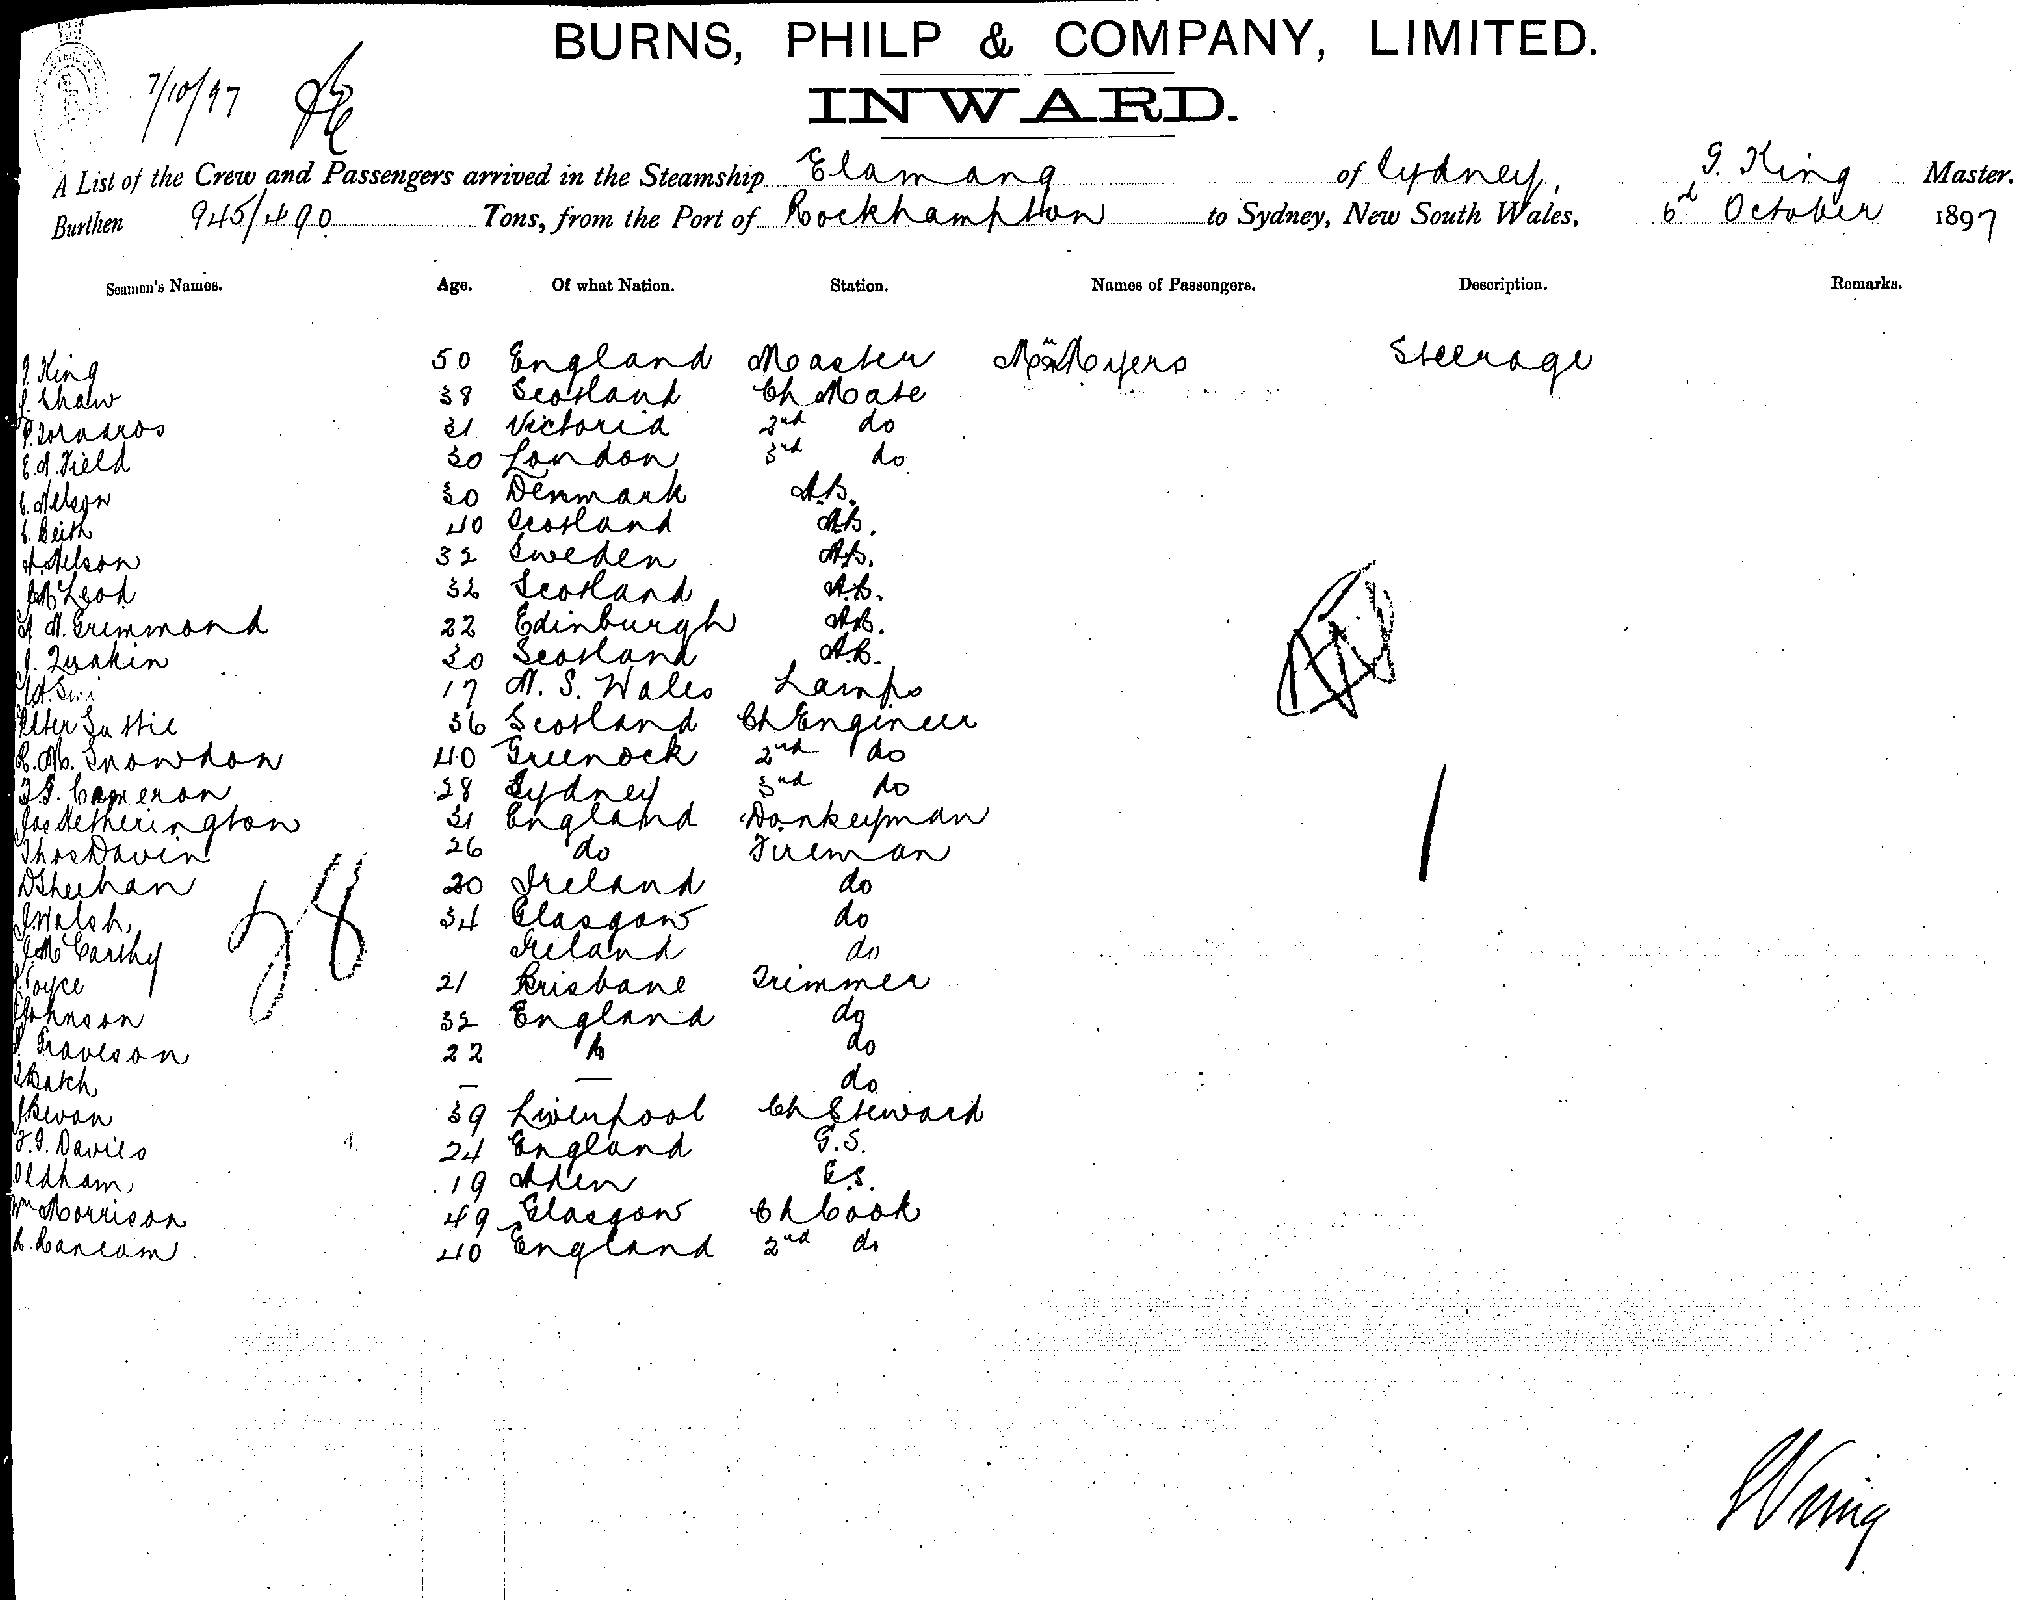 BURNS, PHILP & COMPANY, LIMITED.
INWARD.
7/10/97
A List of the Crew and Passengers arrived in the Steamship Elamang of Sydney, G. King Master.
Burthen 945/490 Tons, from the Port of Rockhampton to Sydney, New South Wales, 6th October 1897
Seamen's Names. Age. Of what Nation. Station. Names of Passengers. Description. Remarks.
King 50 England Master Myers Steerage
Shaw 38 Scotland Ch Mate
31 Victoria 2nd do
E. A. Field 30 London 3rd do
Nelson 30 Denmark A.B.
Beith 40 Scotland AB.
Nelson 32 Sweden AB.
McLeod 32 Scotland A.B.
Grimmond 22 Edinburgh AB.
30 Scotland A.B.
17 N. S. Wales Lamps
Peter 36 Scotland Ch Engineer
M. Snowdon 40 Greenock 2nd do
Cameron 28 Sydney 3rd do
Jas Hetherington 31 England Donkeyman
Thos Davin 26 do Fireman
D Sheehan 20 Ireland do
J Walsh, 34 Glasgow do
J McCarthy Ireland do
21 Brisbane Trimmer
Johnson 32 England do
Graveson 22 do do
Batch — — do
Bevan 39 Liverpool Ch Steward
Davies 24 England G.S.
Oldham 19 Aden E.S.
Wm Morrison 49 Glasgow Ch Cook
Ransom 40 England 2nd do
28
1
G King